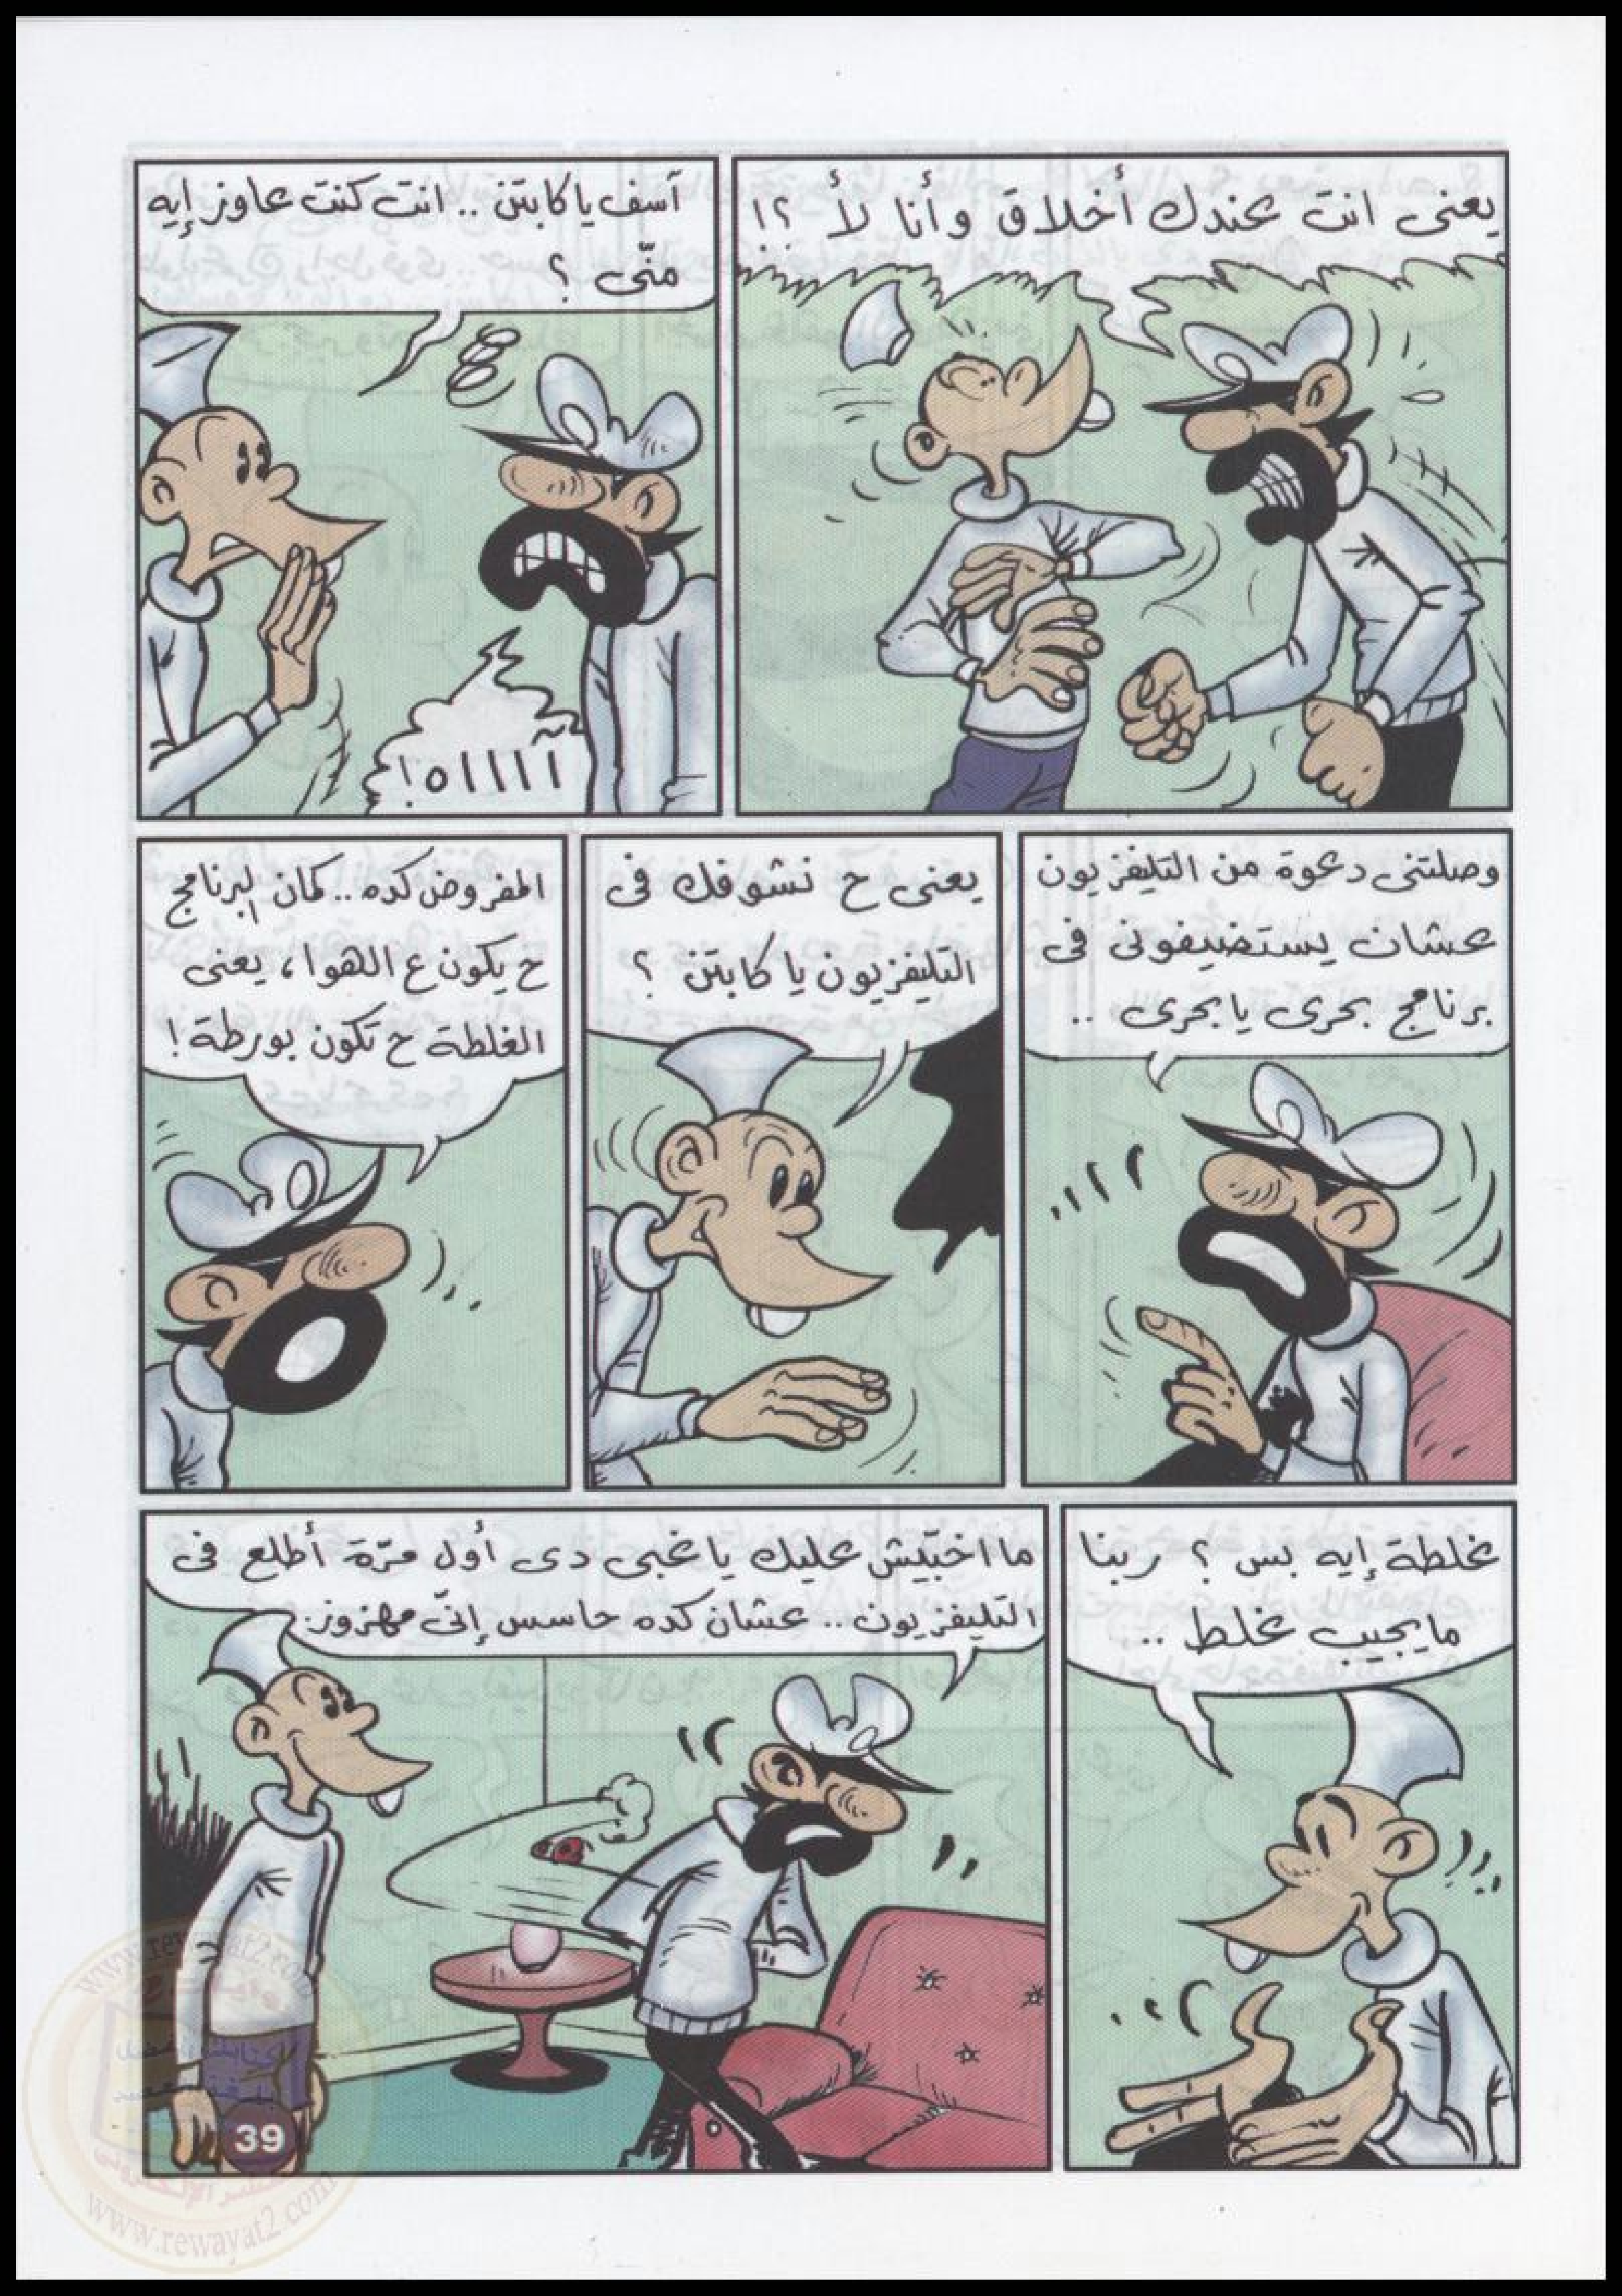 يعنى انت عندك أخلاق وأنا لأ ؟!
آسف ياكابتن .. انت كنت عاوز إيه
منّى ؟
آااااه!
وصلتنى دعوة من التليفزيون
عشان يستضيفونى فى
برنامج بحرى يا بحرى ..
يعنى ح نشوفك فى
التليفزيون يا كابتن ؟
المفروض كده .. كمان البرنامج
ح يكون ع الهوا، يعنى
الغلطة ح تكون بورطة!
غلطة إيه بس ؟ ربنا
مايجيب غلط ..
ما اخبّيش عليك يا غبى دى أول مرّة أطلع فى
التليفزيون .. عشان كده حاسس إنّى مهزوز.
39
www.rewayat2.com
www.rewayat2.com